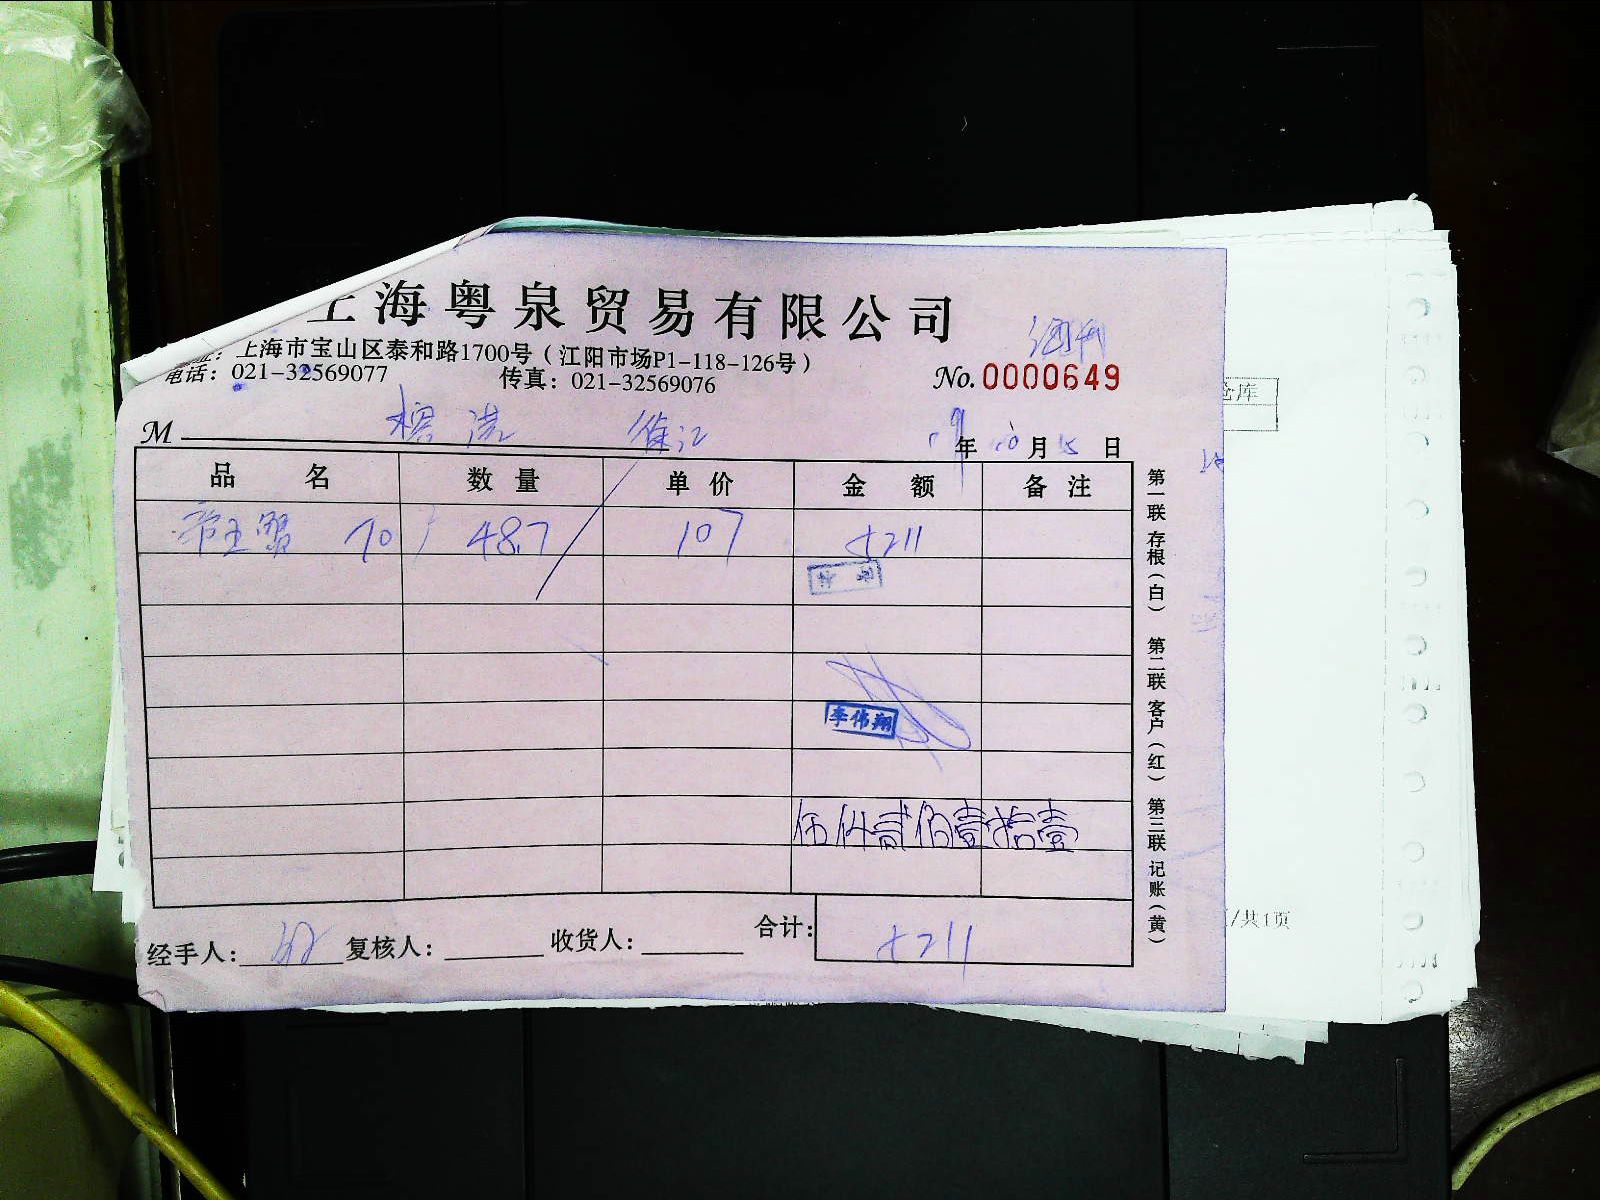 上海粤泉贸易有限公司
址：上海市宝山区泰和路1700号（江阳市场P1-118-126号）
电话：021-32569077 传真：021-32569076
No. 0000649
M 年 10 月 15 日
品 名 数 量 单 价 金 额 备 注
帝王蟹 10 48.7 107 5211
李伟翔
伍仟贰佰壹拾壹
合计： 5211
经手人： 复核人： 收货人：
第一联 存根（白） 第二联 客户（红） 第三联 记账（黄）
仓库
/共1页